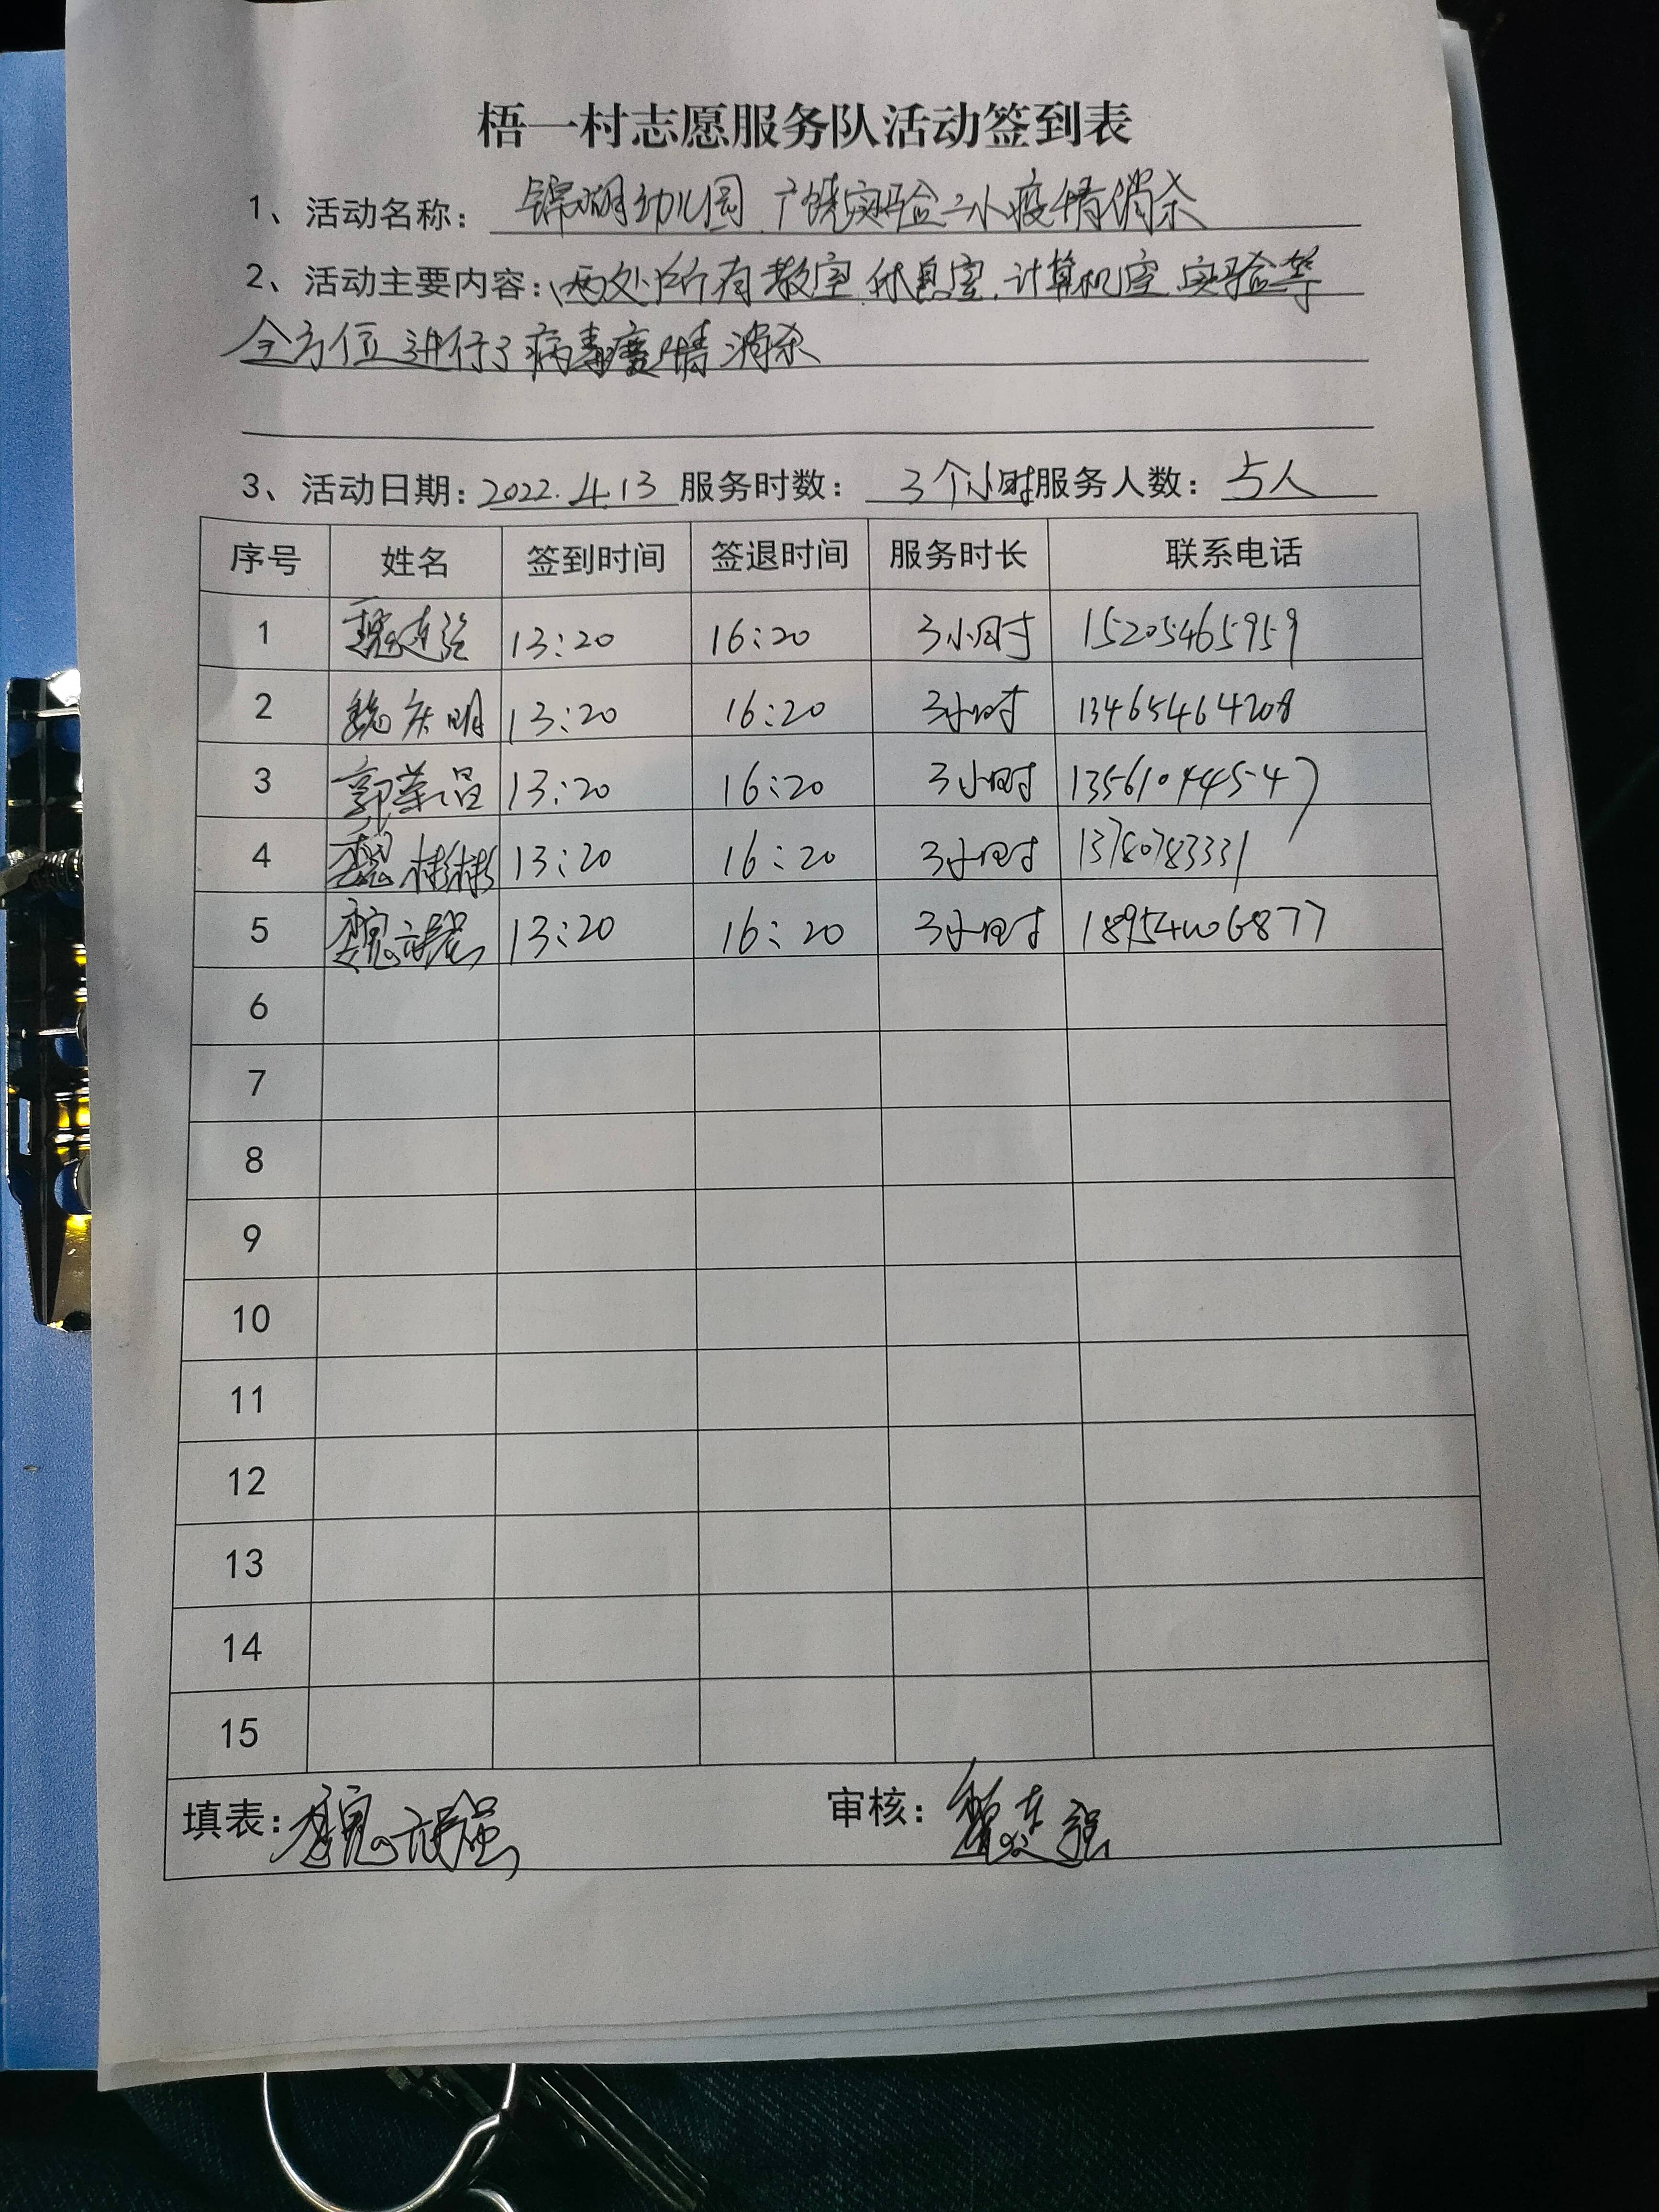 梧一村志愿服务队活动签到表
1、活动名称： 锦湖幼儿园、广饶实验二小疫情消杀
2、活动主要内容：两处所有教室、休息室、计算机室、实验等
全方位进行了病毒疫情消杀
3、活动日期：2022.4.13 服务时数： 3个小时 服务人数： 5人
序号 姓名 签到时间 签退时间 服务时长 联系电话
1 魏连 13:20 16:20 3小时 15205465959
2 魏庆明 13:20 16:20 3小时 13465464208
3 郭荣昌 13:20 16:20 3小时
4 魏彬彬 13:20 16:20 3小时 13780783331
5 魏 13:20 16:20 3小时 18954406877
6
7
8
9
10
11
12
13
14
15
填表：魏 强 审核：魏连强